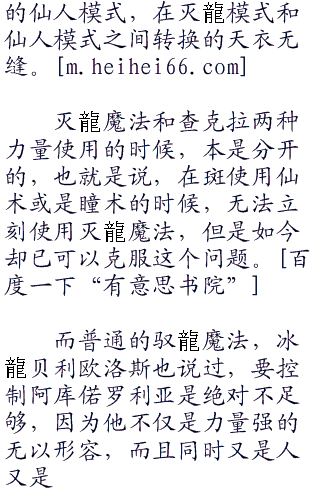 的仙人模式，在灭龍模式和
仙人模式之间转换的天衣无
缝。[m.heihei66.com]
灭龍魔法和查克拉两种
力量使用的时候，本是分开
的，也就是说，在斑使用仙
术或是瞳术的时候，无法立
刻使用灭龍魔法，但是如今
却已可以克服这个问题。[百
度一下“有意思书院”]
而普通的驭龍魔法，冰
龍贝利欧洛斯也说过，要控
制阿库偌罗利亚是绝对不足
够，因为他不仅是力量强的
无以形容，而且同时又是人
又是